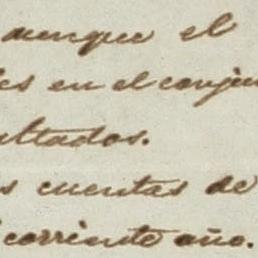 aunque el
es en el conju
ultados.
s cuentas de
corriente año.